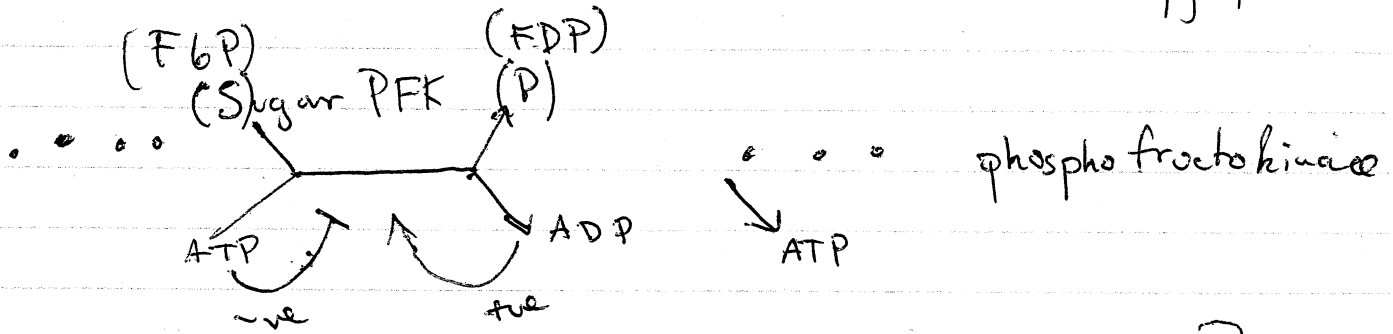 (F6P) (FDP)
(Sugar PFK (P)
phosphofructokinase
ATP ADP ATP
-ve +ve